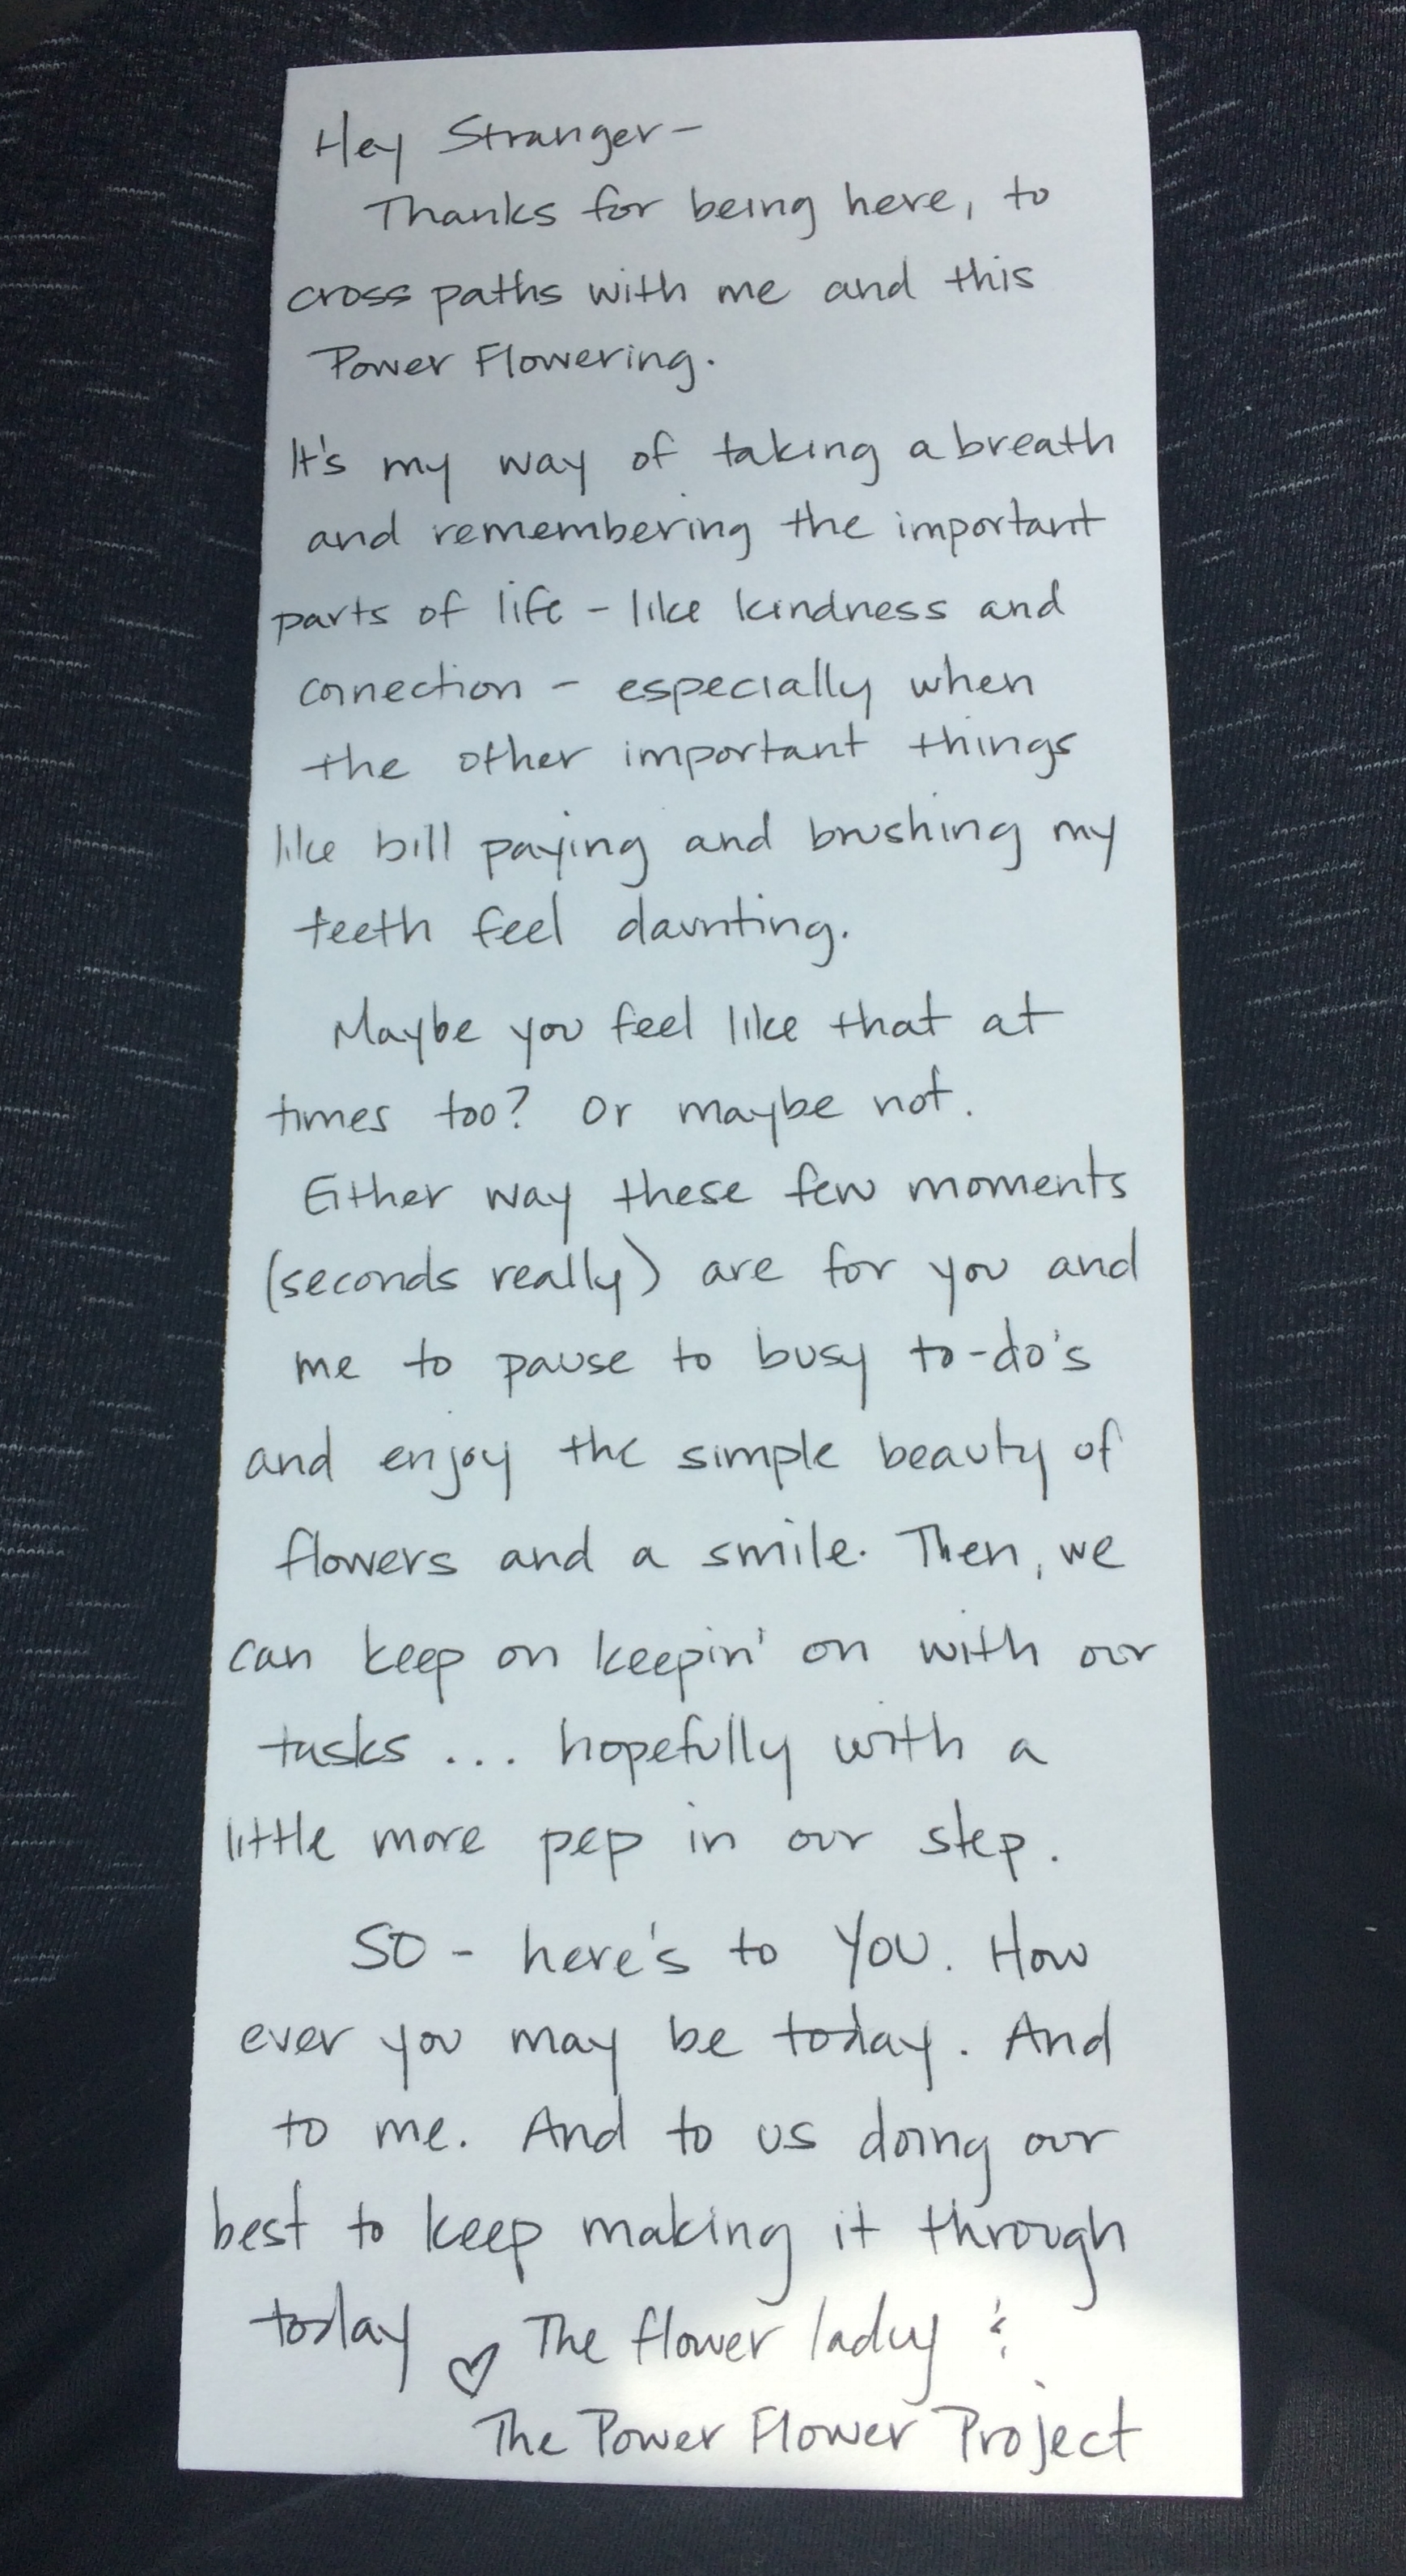 Hey Stranger-
Thanks for being here, to
cross paths with me and this
Power Flowering.
It's my way of taking a breath
and remembering the important
parts of life - like kindness and
connection - especially when
the other important things
like bill paying and brushing my
teeth feel daunting.
Maybe you feel like that at
times too? Or maybe not.
Either way these few moments
(seconds really) are for you and
me to pause to busy to-do's
and enjoy the simple beauty of
flowers and a smile. Then, we
can keep on keepin' on with our
tasks ... hopefully with a
little more pep in our step.
SO - here's to YOU. How
ever you may be today. And
to me. And to us doing our
best to keep making it through
today ♡ The flower lady &
The Power Flower Project